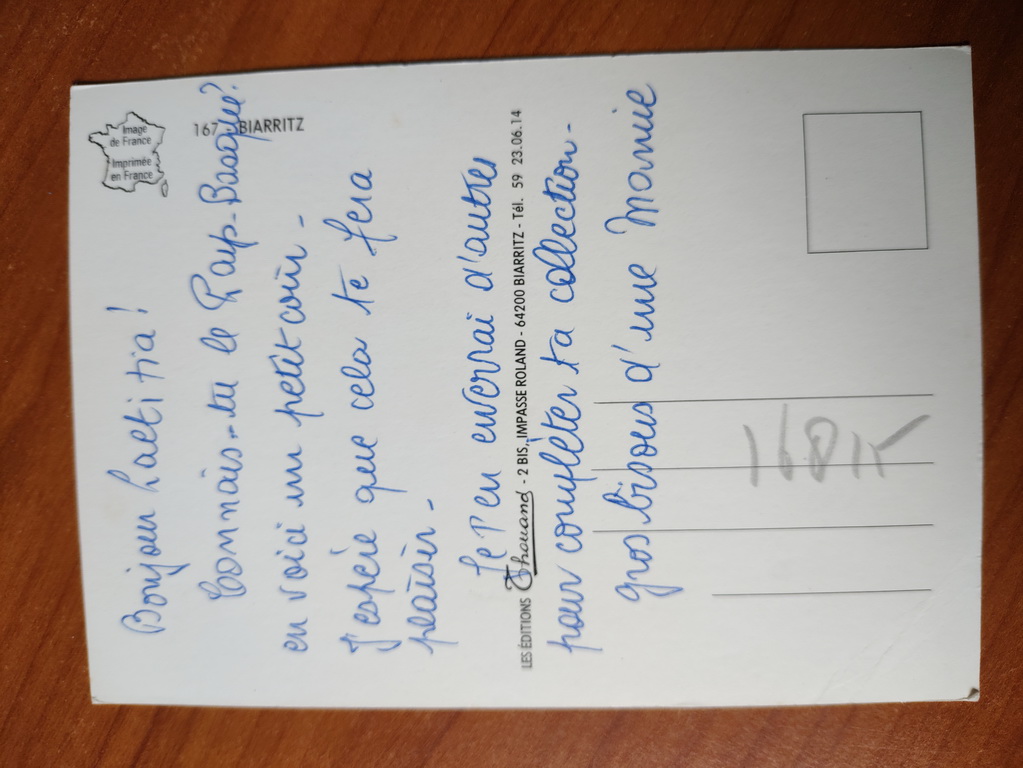 Image
de France
Imprimée
en France
167 - BIARRITZ
Bonjour Laetitia!
Connais-tu le Pays-Basque?
en voici un petit coin -
J'espère que cela te fera
plaisir -
Je t'en enverrai d'autres
LES ÉDITIONS Thouand - 2 BIS, IMPASSE ROLAND - 64200 BIARRITZ - Tél. 59 23.06.14
pour compléter ta collection -
gros bisous d'une Mamie